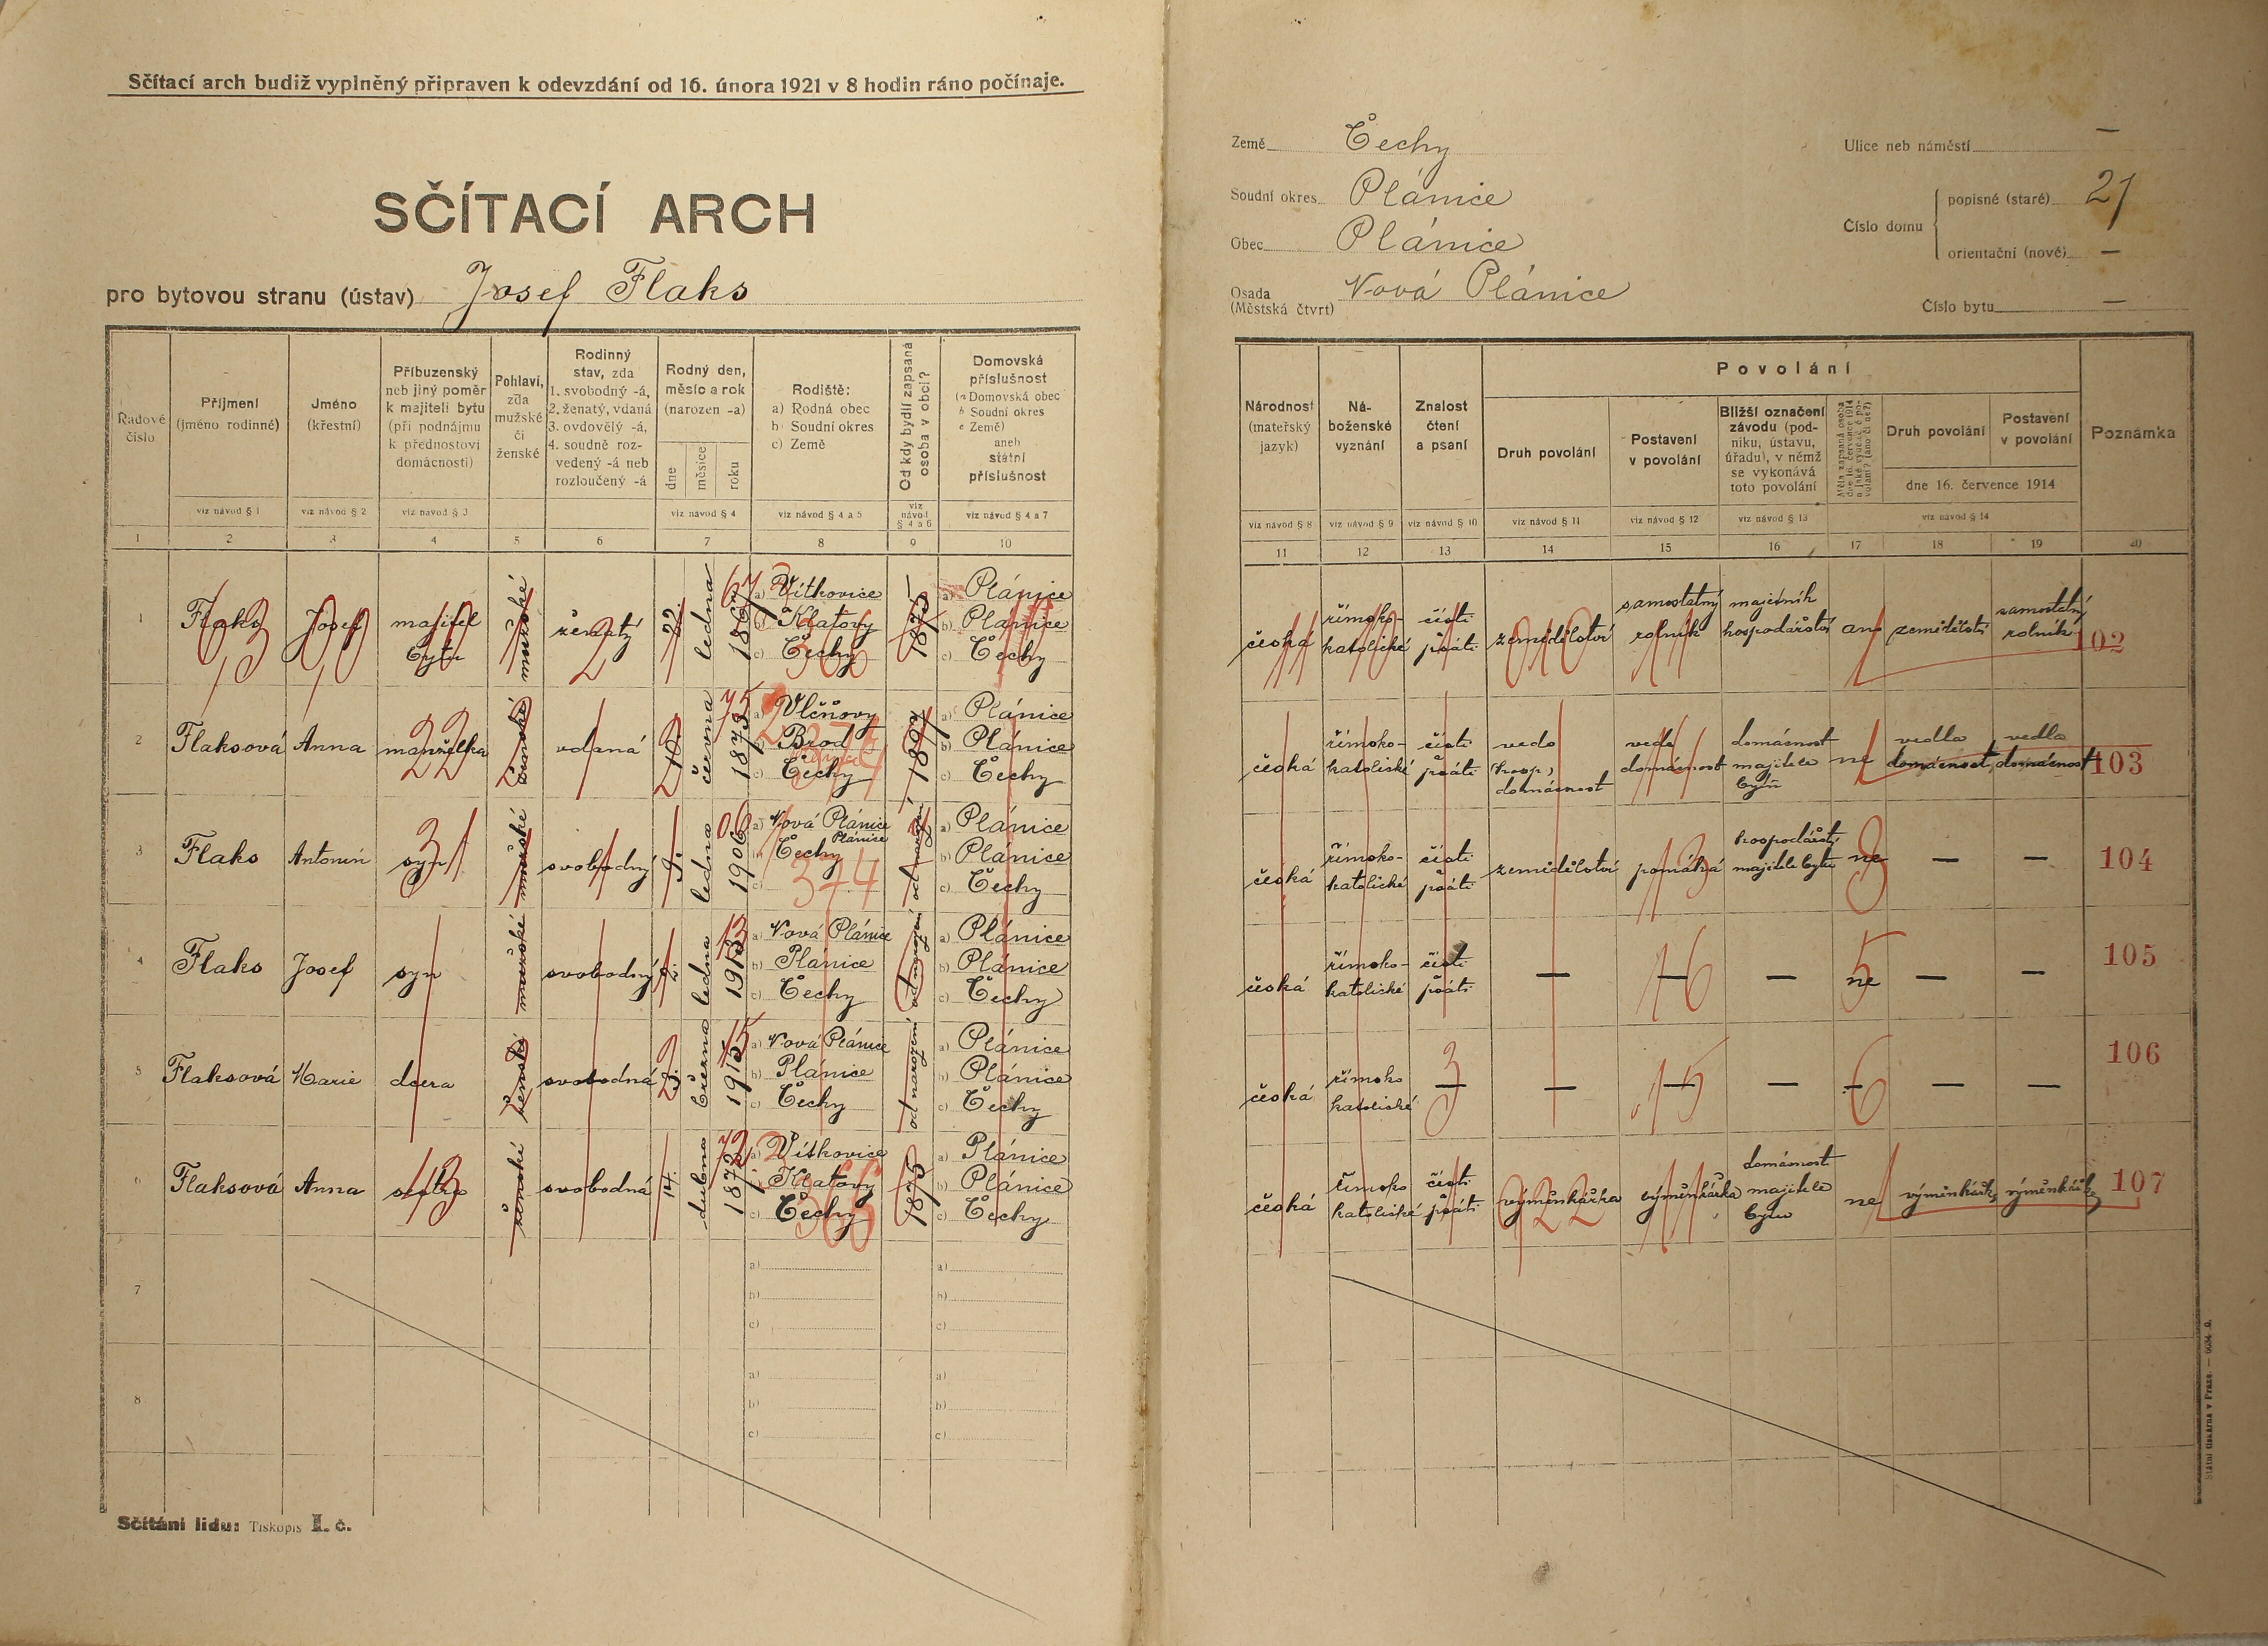 Sčítací arch budiž vyplněný připraven k odevzdání od 16. února 1921 v 8 hodin ráno počínaje.
SČÍTACÍ ARCH
pro bytovou stranu (ústav) Josef Flaks
Země Čechy
Soudní okres Plánice
Obec Plánice
Osada Nová Plánice
(Městská čtvrť)
Ulice neb náměstí —
Číslo domu
popisné (staré) 21
orientační (nové) —
Číslo bytu —
Řadové číslo
Příjmení (jméno rodinné)
Jméno (křestní)
Příbuzenský neb jiný poměr k majiteli bytu (při podnájmu k přednostovi domácnosti)
Pohlaví, zda mužské či ženské
Rodinný stav, zda 1. svobodný -á, 2. ženatý, vdaná 3. ovdovělý -á, 4. soudně rozvedený -á neb rozloučený -á
Rodný den, měsíc a rok (narozen -a)
dne měsíce roku
Rodiště: a) Rodná obec b) Soudní okres c) Země
Od kdy bydlí zapsaná osoba v obci?
Domovská příslušnost (a Domovská obec b Soudní okres c Země) aneb státní příslušnost
viz návod § 1 viz návod § 2 viz návod § 3 viz návod § 4 viz návod § 4 a 5 viz návod § 4 a 6 viz návod § 4 a 7
1 2 3 4 5 6 7 8 9 10
1 Flaks Josef majitel bytu mužské ženatý 22. ledna 1867 a) Vítkovice b) Klatovy c) Čechy 1875 a) Plánice b) Plánice c) Čechy
2 Flaksová Anna manželka ženské vdaná června 1875 a) Vlčňovy b) Brod c) Čechy a) Plánice b) Plánice c) Čechy
3 Flaks Antonín syn mužské svobodný 9. ledna 1906 a) Nová Plánice b) Čechy Plánice c) od narození a) Plánice b) Plánice c) Čechy
4 Flaks Josef syn mužské svobodný ledna 1913 a) Nová Plánice b) Plánice c) Čechy od narození a) Plánice b) Plánice c) Čechy
5 Flaksová Marie dcera ženské svobodná března 1915 a) Nová Plánice b) Plánice c) Čechy od narození a) Plánice b) Plánice c) Čechy
6 Flaksová Anna sestra ženské svobodná 14. dubna 1872 a) Vítkovice b) Klatovy c) Čechy 1875 a) Plánice b) Plánice c) Čechy
7 a) b) c) a) b) c)
8 a) b) c) a) b) c)
Sčítání lidu: Tiskopis I. č.
Národnost (mateřský jazyk)
Náboženské vyznání
Znalost čtení a psaní
Povolání
Druh povolání
Postavení v povolání
Bližší označení závodu (podniku, ústavu, úřadu), v němž se vykonává toto povolání
Druh povolání
Postavení v povolání
dne 16. července 1914
Poznámka
viz návod § 8 viz návod § 9 viz návod § 10 viz návod § 11 viz návod § 12 viz návod § 13 viz návod § 14
11 12 13 14 15 16 17 18 19 20
česká římsko-katolické čísti psáti zemědělství samostatný rolník majetník hospodářství ano zemědělství samostatný rolník 102
česká římsko-katolické čísti psáti vede domácnost vede domácnost domácnost majitele bytu ne vedla domácnost vedla domácnost 103
česká římsko-katolické čísti psáti zemědělství pomáhá hospodářství majitele bytu ne — — 104
česká římsko-katolické čísti psáti — — — ne — — 105
česká římsko katolické — — — — — — — 106
česká římsko katolické čísti psáti výměnkářka výměnkářka domácnost majitele bytu ne výměnkářka výměnkářka 107
Státní tiskárna v Praze.